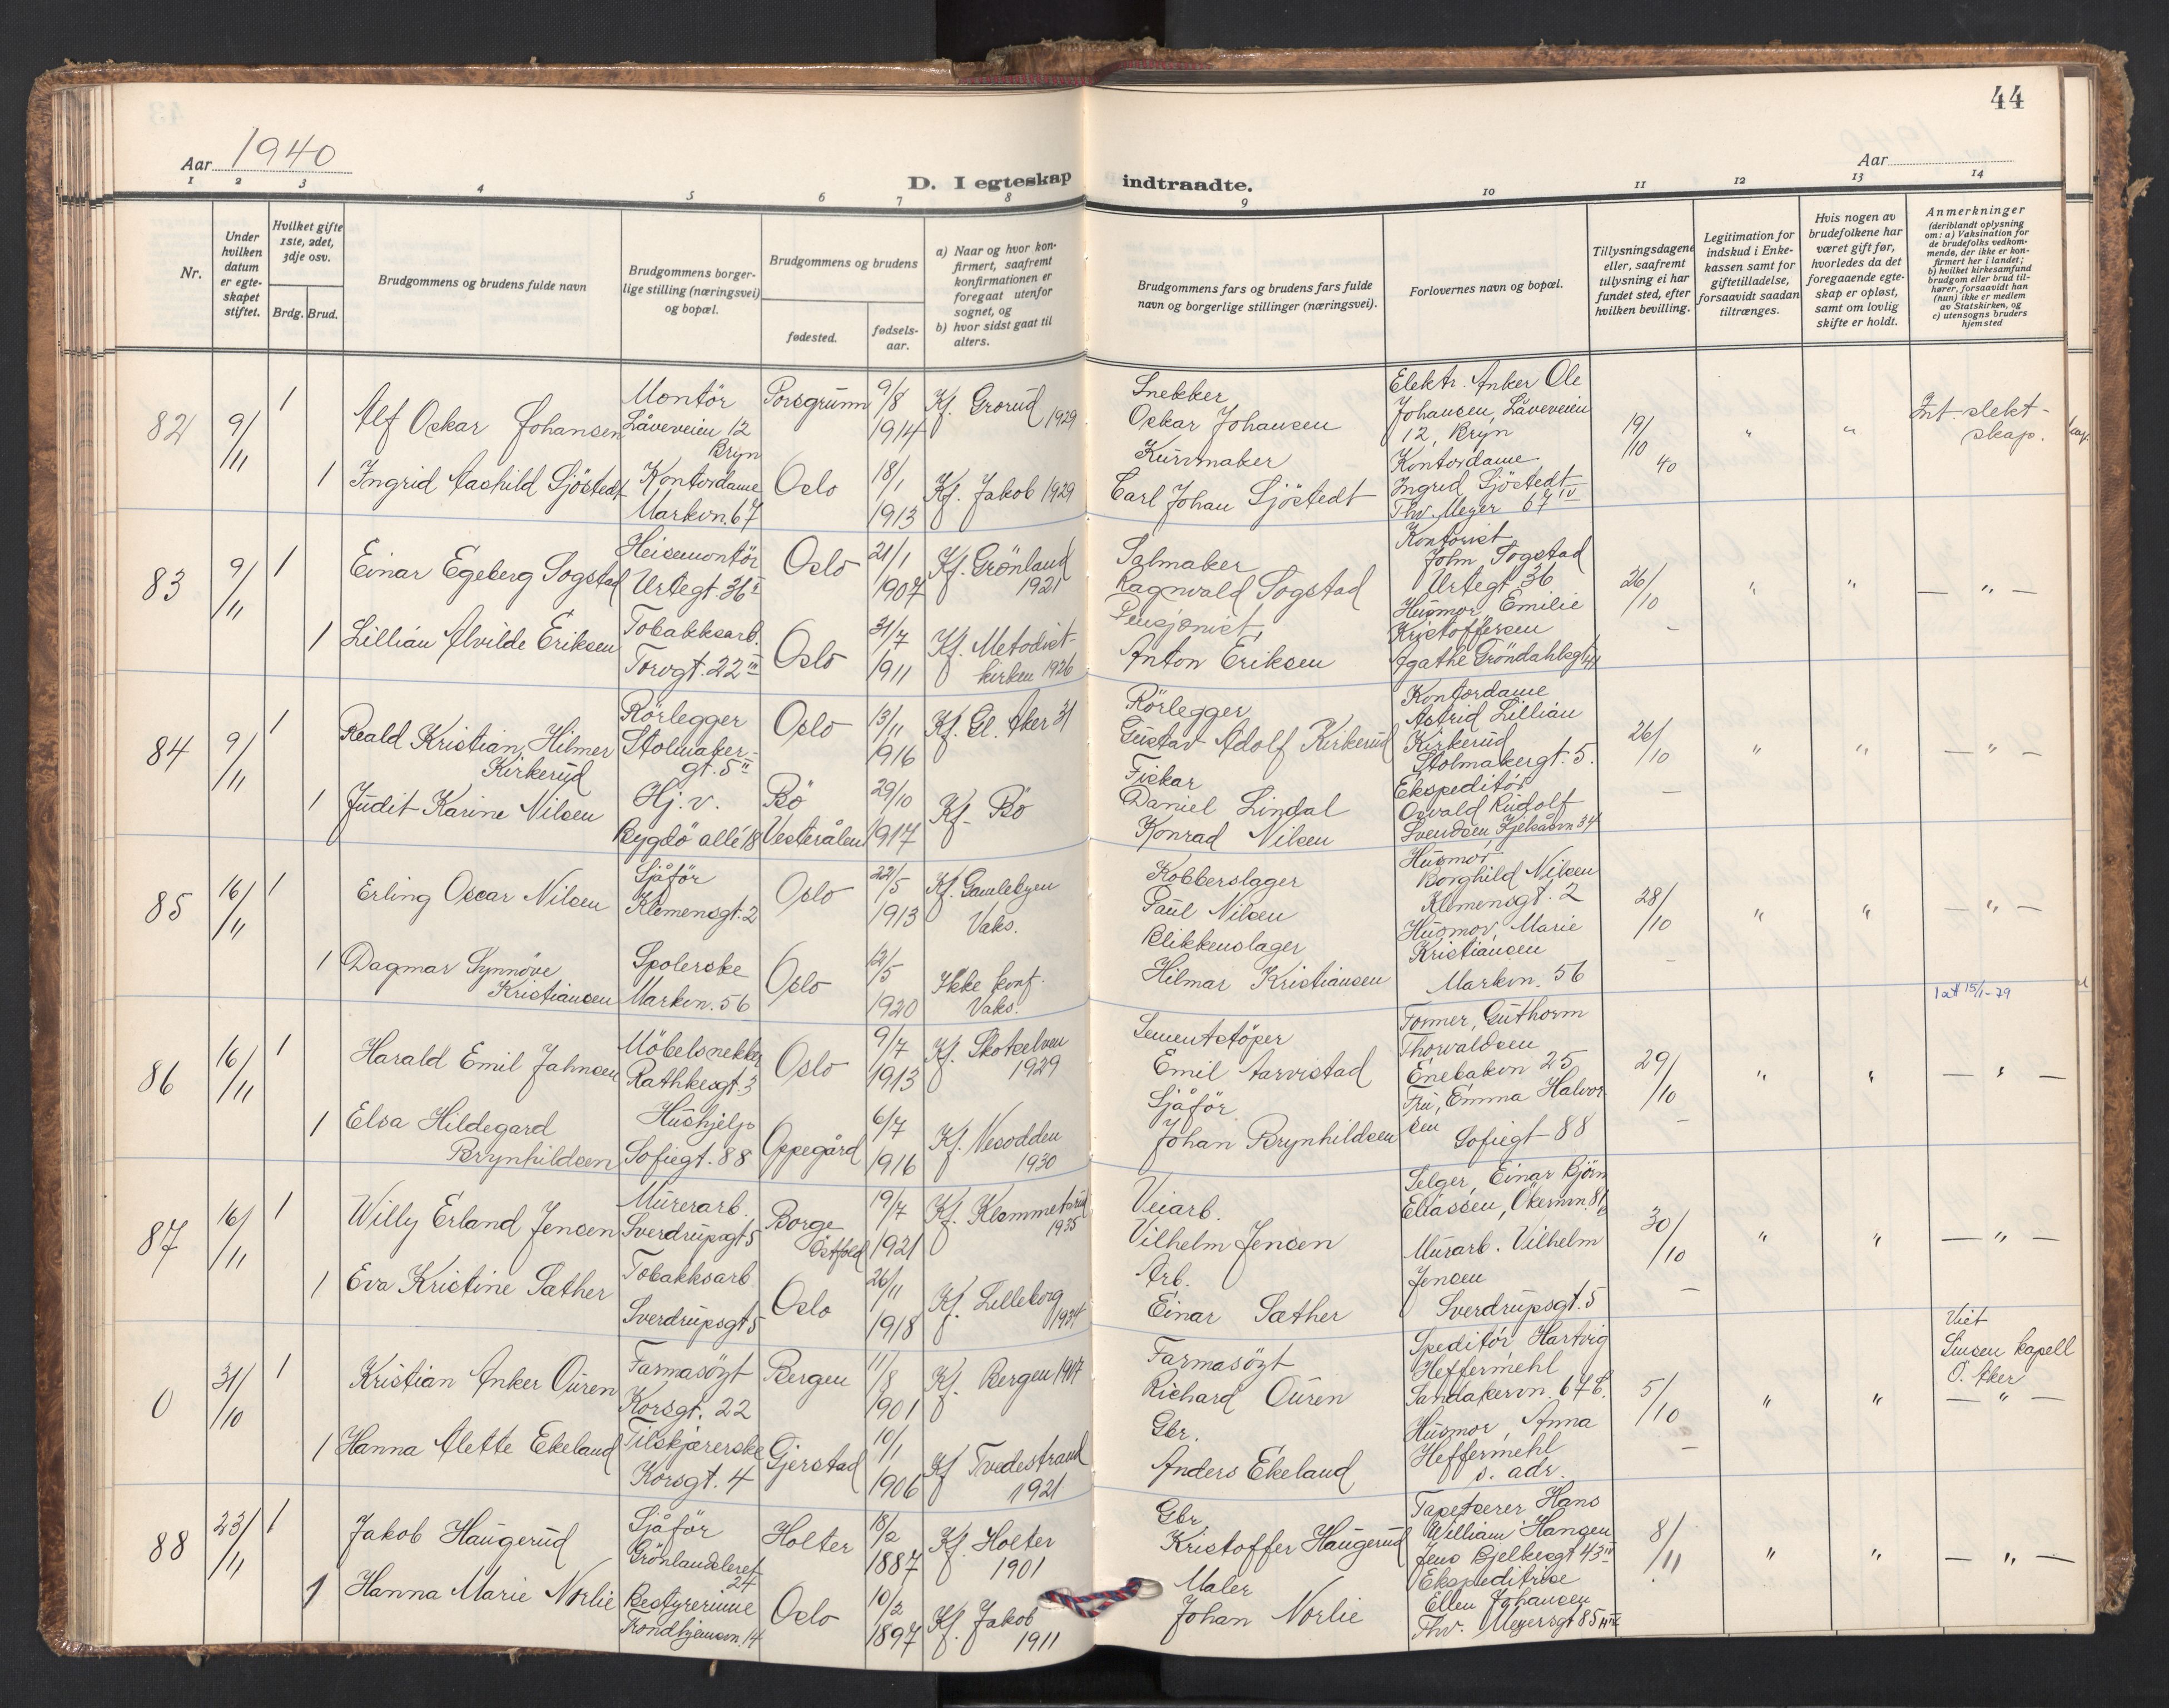 44
Aar 1940
Aar
D. I egteskap indtraadte.
1 2 3 4 5 6 7 8 9 10 11 12 13 14
Nr.
Under hvilken datum er egteskapet stiftet.
Hvilket gifte 1ste, 2det, 3dje osv.
Brdg. Brud.
Brudgommens og brudens fulde navn
Brudgommens borgerlige stilling (næringsvei) og bopæl.
Brudgommens og brudens
fødested.
fødselsaar.
a) Naar og hvor konfirmert, saafremt konfirmationen er foregaat utenfor sognet, og
b) hvor sidst gaat til alters.
Brudgommens fars og brudens fars fulde navn og borgerlige stillinger (næringsvei).
Forlovernes navn og bopæl.
Tillysningsdagene eller, saafremt tillysning ei har fundet sted, efter hvilken bevilling.
Legitimation for indskud i Enkekassen samt for giftetilladelse, forsaavidt saadan tiltrænges.
Hvis nogen av brudefolkene har været gift før, hvorledes da det foregaaende egteskap er opløst, samt om lovlig skifte er holdt.
Anmerkninger (deriblandt oplysning om: a) Vaksination for de brudefolks vedkommende, der ikke er konfirmert her i landet; b) hvilket kirkesamfund brudgom eller brud tilhører, forsaavidt han (hun) ikke er medlem av Statskirken, og c) utensogns bruders hjemsted
82 9/11 1 Alf Oskar Johansen Montör Låveveien 12 Bryn Porsgrunn 9/8 1914 Kf. Grorud 1929 Snekker Oskar Johansen Elektr. Anker Ole Johansen, Låveveien 12, Bryn 19/10 40 " " Int. slektskap.
1 Ingrid Aashild Sjöstedt Kontordame Markvn. 67 Oslo 18/1 1913 Kf. Jakob 1929 Kurvmaker Carl Johan Sjöstedt Kontordame Ingrid Sjöstedt Thv. Meyer 67 IV
83 9/11 1 Einar Egeberg Sogstad Heisemontör Urtegt. 36 II Oslo 21/1 1907 Kf. Grönland 1921 Salmaker Ragnvald Sogstad Kontorist John Sogstad Urtegt 36 26/10 " " — " —
1 Lillian Alvilde Eriksen Tobakksarb. Torvgt. 22 III Oslo 31/7 1911 Kf. Metodistkirken 1926 Pensjonist Anton Eriksen Husmor, Emilie Kristoffersen Agathe Gröndahlsgt 41 -
84 9/11 1 Reald Kristian Hilmer Kirkerud Rörlegger Stolmakergt. 5 II Oslo 13/11 1916 Kf. Gl. Aker 31 Rörlegger Gustav Adolf Kirkerud Kontordame Astrid Lillian Kirkerud Stolmakergt. 5. 26/10 " " — " —
1 Judit Karine Nilsen Hj. v. Bygdö allé 18 Bö Vesterålen 29/10 1917 Kf. Bö Fisker Daniel Lindal Konrad Nilsen Ekspeditör Osvald Rudolf Svendsen Kjelsåsvn 34 —
85 16/11 1 Erling Oscar Nilsen Sjåför Klemensgt. 2 Oslo 22/5 1913 Kf. Gamlebyen Vaks. Kobberslager Paul Nilsen Husmor Borghild Nilsen Klemensgt. 2 28/10 " " — " —
1 Dagmar Synnöve Kristiansen Spolerske Markvn. 56 Oslo 12/5 1920 Ikke konf. Vaks. Blikkenslager Hilmar Kristiansen Husmor, Marie Kristiansen Markvn. 56 - 1 att 15/1-79
86 16/11 1 Harald Emil Jahnsen Möbelsnekker Rathkesgt. 3 Oslo 9/7 1913 Kf. Skotselven 1929 Sementstöper Emil Aarvistad Former, Guthorm Thorvaldsen Enebakvn 25 29/10 " " — " —
1 Elsa Hildegard Brynhildsen Hushjelp Sofiegt. 88 Oppegård 6/7 1916 Kf. Nesodden 1930 Sjåför Johan Brynhildsen Fru, Emma Halvorsen Sofiegt 88 -
87 16/11 1 Willy Erland Jensen Murerarb. Sverdrupsgt 5 Borge Östfold 19/7 1921 Kf. Klemmetsrud 1935 Veiarb. Vilhelm Jensen Selger, Einar Björn Eliassen, Økernvn. 81 b 30/10 " " — " —
1 Eva Kristine Sæther Tobakksarb. Sverdrupsgt 5 Oslo 26/11 1918 Kf. Lilleborg 1934 Arb. Einar Sæther Murarb. Vilhelm Jensen Sverdrupsgt. 5 —
0 31/10 1 Kristian Anker Ouren Farmasöyt Korsgt. 22 Bergen 11/8 1901 Kf. Bergen 1917 Farmasöyt Richard Ouren Speditör Hartvig Heffermehl Sandakervn. 67 b. 5/10 " " Viet Sinsen kapell Ö. Aker — " —
1 Hanna Alette Ekeland Tilskjærerske Korsgt. 4 Gjerstad 10/1 1906 Kf Tvedestrand 1921 Gbr. Anders Ekeland Husmor, Anna Heffermehl s. adr. —
88 23/11 1 Jakob Haugerud Sjåför Grönlandsleret 24 Holter 18/2 1887 Kf. Holter 1901 Gbr Kristoffer Haugerud Tapetserer Hans William Hangen Jens Bjelkesgt 43 III 8/11 " " — " —
1 Hanna Marie Norlie Bestyrerinne Trondhjemsvn. 14 Oslo 10/2 1897 Kf. Jakob 1911 Maler Johan Norlie Ekspeditrise Ellen Johansen Thv. Meyersgt 85